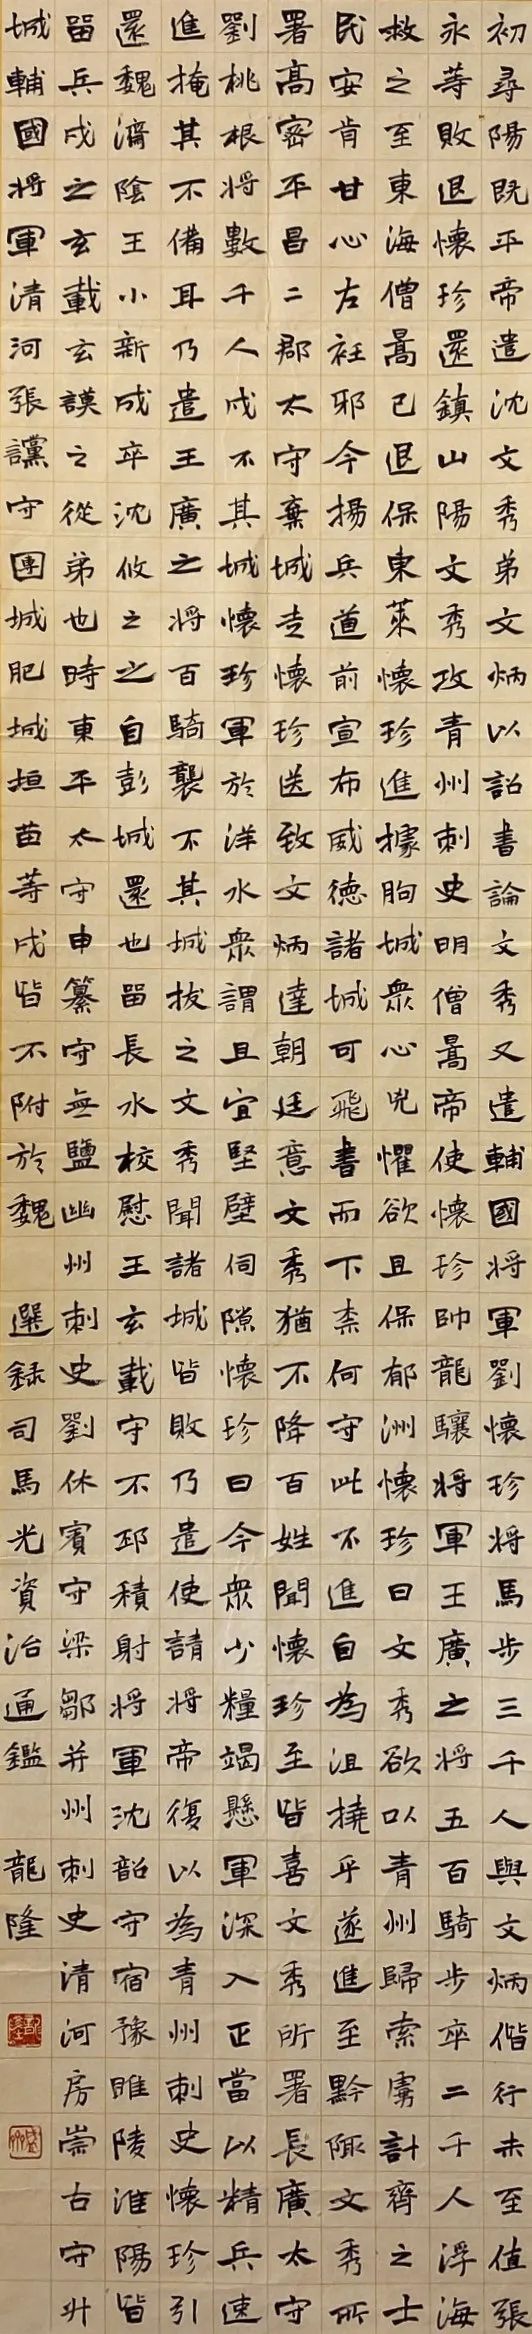 初尋陽既平帝遣沈文秀弟文炳以詔書論文秀又遣輔國將軍劉懷珍將馬步三千人與文炳偕行未至值張
永等敗退懷珍還鎮山陽文秀攻青州刺史明僧暠帝使懷珍帥龍驤將軍王廣之將五百騎步卒二千人浮海
救之至東海僧暠已退保東萊懷珍進據朐城眾心兇懼欲且保郁洲懷珍曰文秀欲以青州歸索虜計齊之士
民安肯甘心左衽邪今揚兵道前宣布威德諸城可飛書而下柰何守此不進自為沮撓乎遂進至黔陬文秀所
署高密平昌二郡太守棄城走懷珍送致文炳達朝廷意文秀猶不降百姓聞懷珍至皆喜文秀所署長廣太守
劉桃根將數千人戍不其城懷珍軍於洋水眾謂且宜堅壁伺隙懷珍曰今眾少糧竭懸軍深入正當以精兵速
進掩其不備耳乃遣王廣之將百騎襲不其城拔之文秀聞諸城皆敗乃遣使請將帝復以為青州刺史懷珍引
還魏濟陰王小新成卒沈攸之之自彭城還也留長水校慰王玄載守不邳積射將軍沈韶守宿豫睢陵淮陽皆
留兵戍之玄載玄謨之從弟也時東平太守申纂守無鹽幽州刺史劉休賓守梁鄒并州刺史清河房崇古守升
城輔國將軍清河張讜守團城肥城垣苗等戍皆不附於魏 選録司馬光資治通鑑 龍隆